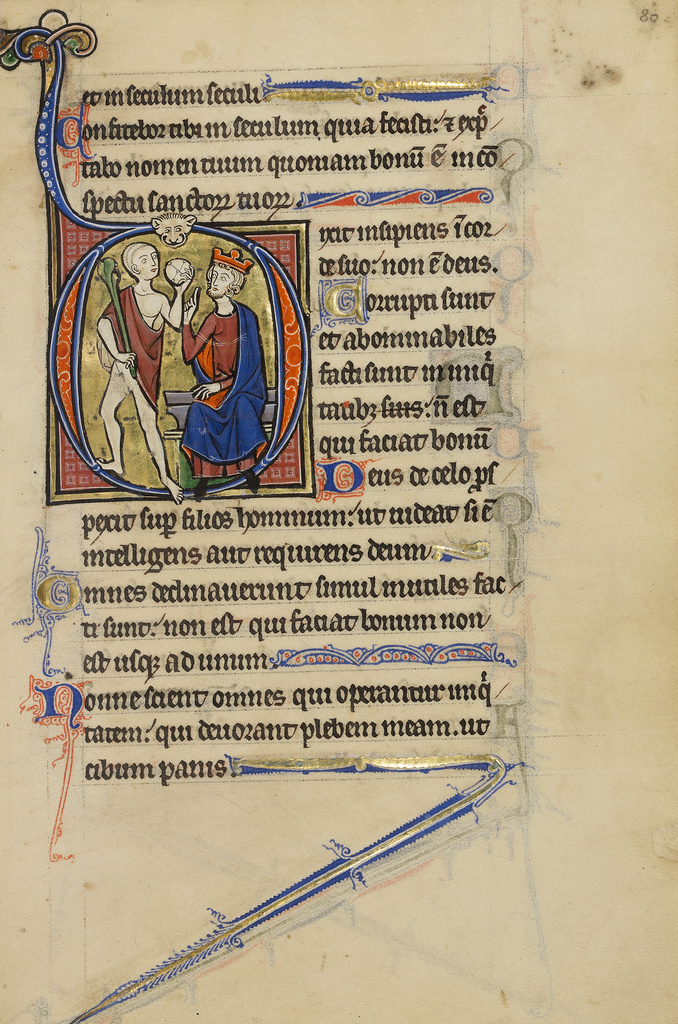 80
et in seculum seculi
Confitebor tibi in seculum quia fecisti: ⁊ exp̄
tabo nomen tuum quoniam bonū ē in cō
spectu sanctoꝝ tuoꝝ
Dixit insipiens ī cor
de suo: non ē deus.
Corrupti sunt
et abominabiles
facti sunt in iniqͥ
tatibꝫ suis: n̄ est
qui faciat bonū
Deus de celo ꝓs
pexit suꝑ filios hominum: ut uideat si ē
intelligens aut requirens deum
Omnes declinauerunt simul inutiles fac
ti sunt: non est qui faciat bonum non
est usqꝫ ad unum
Nonne scient omnes qui operantur iniqͥ
tatem: qui deuorant plebem meam. ut
cibum panis